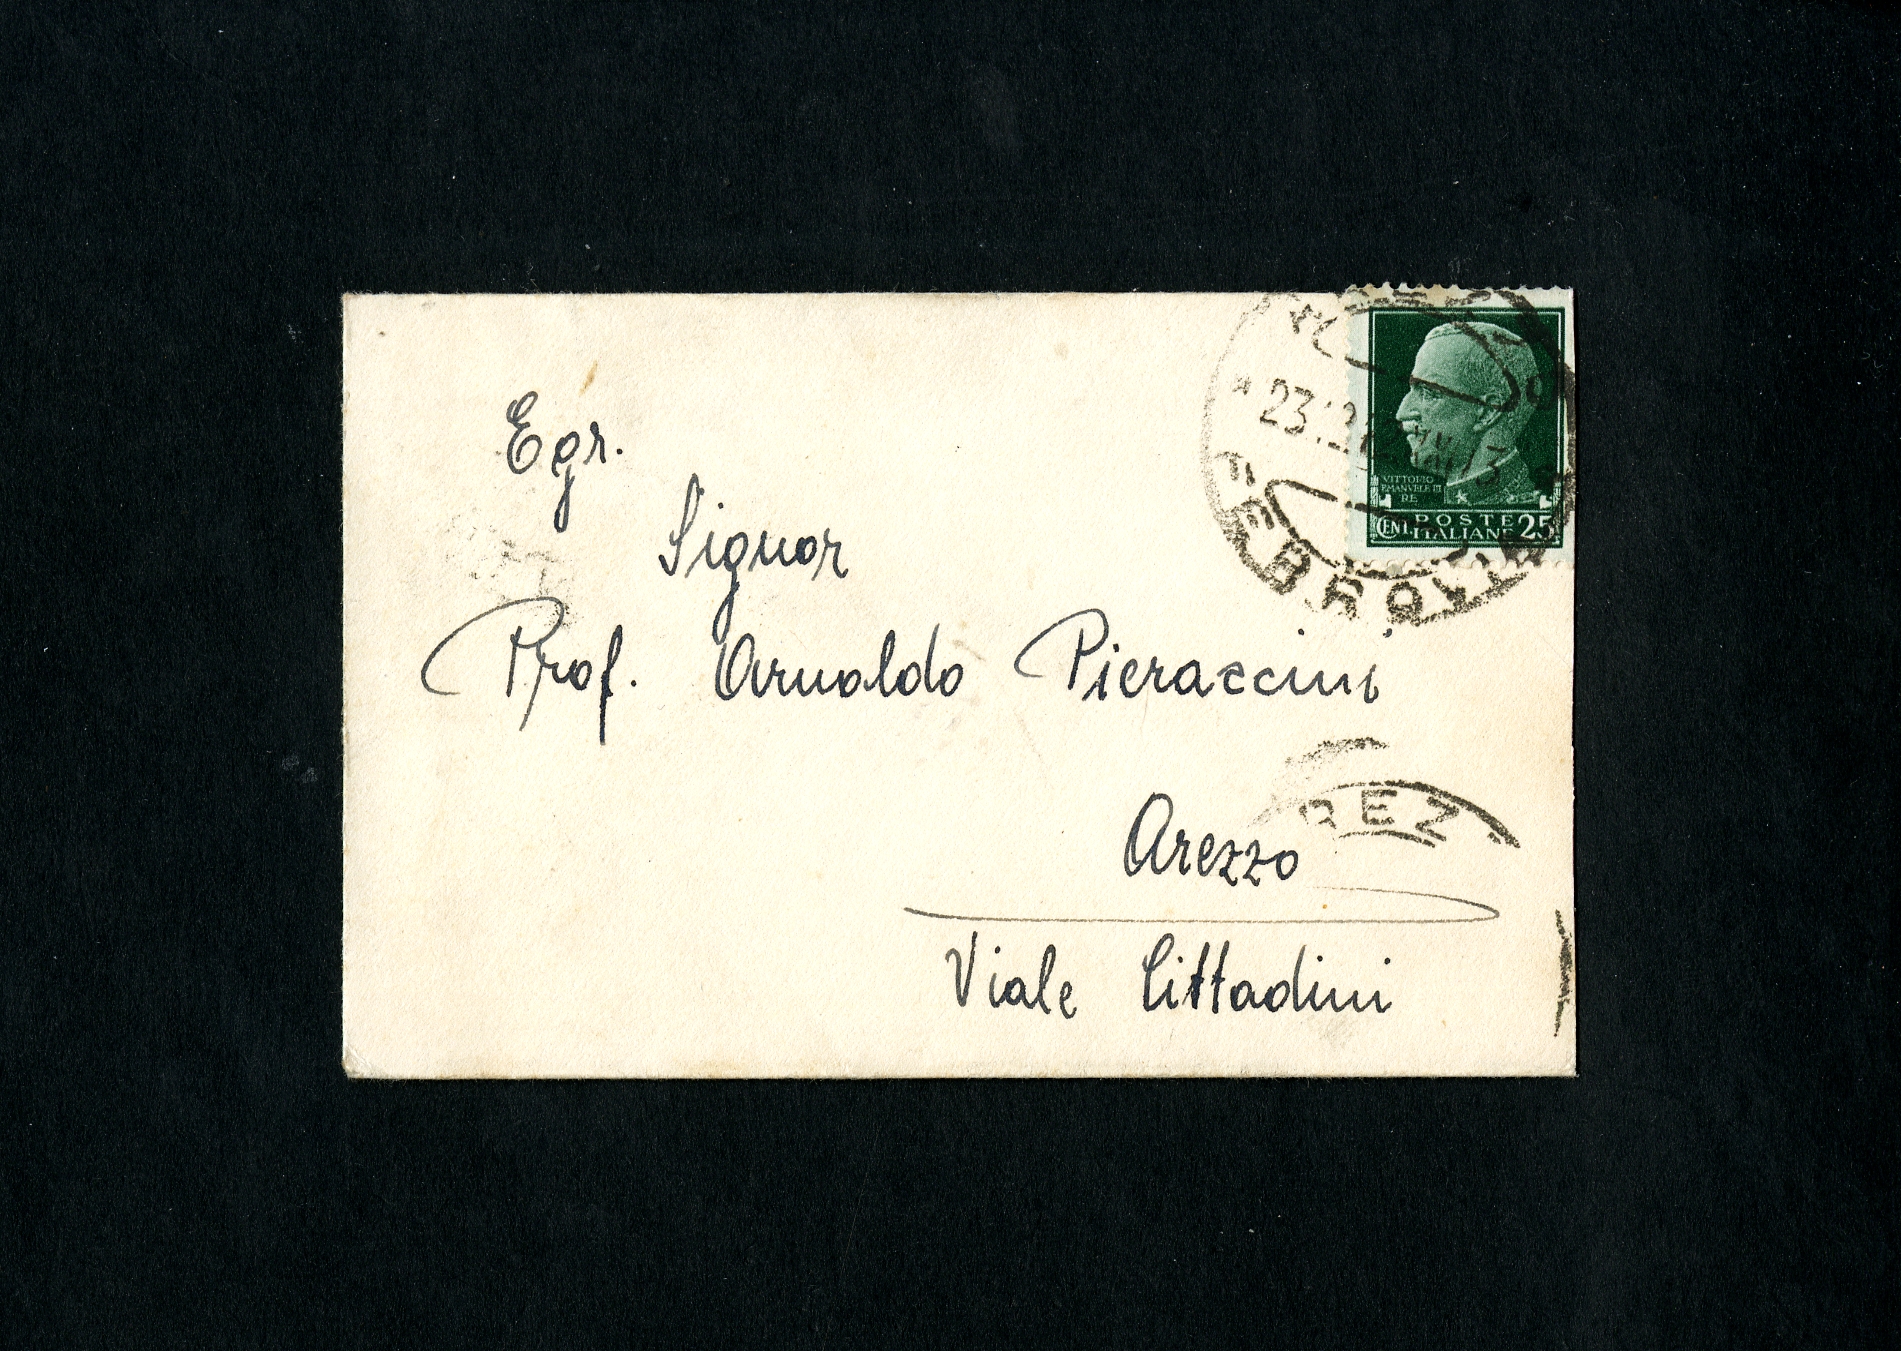 Egr.
Signor
Prof. Arnaldo Pieraccini
Arezzo
Viale Cittadini
VITTORIO
EMANVELE III
RE
CENT. POSTE
ITALIANE 25
23.12
REZ